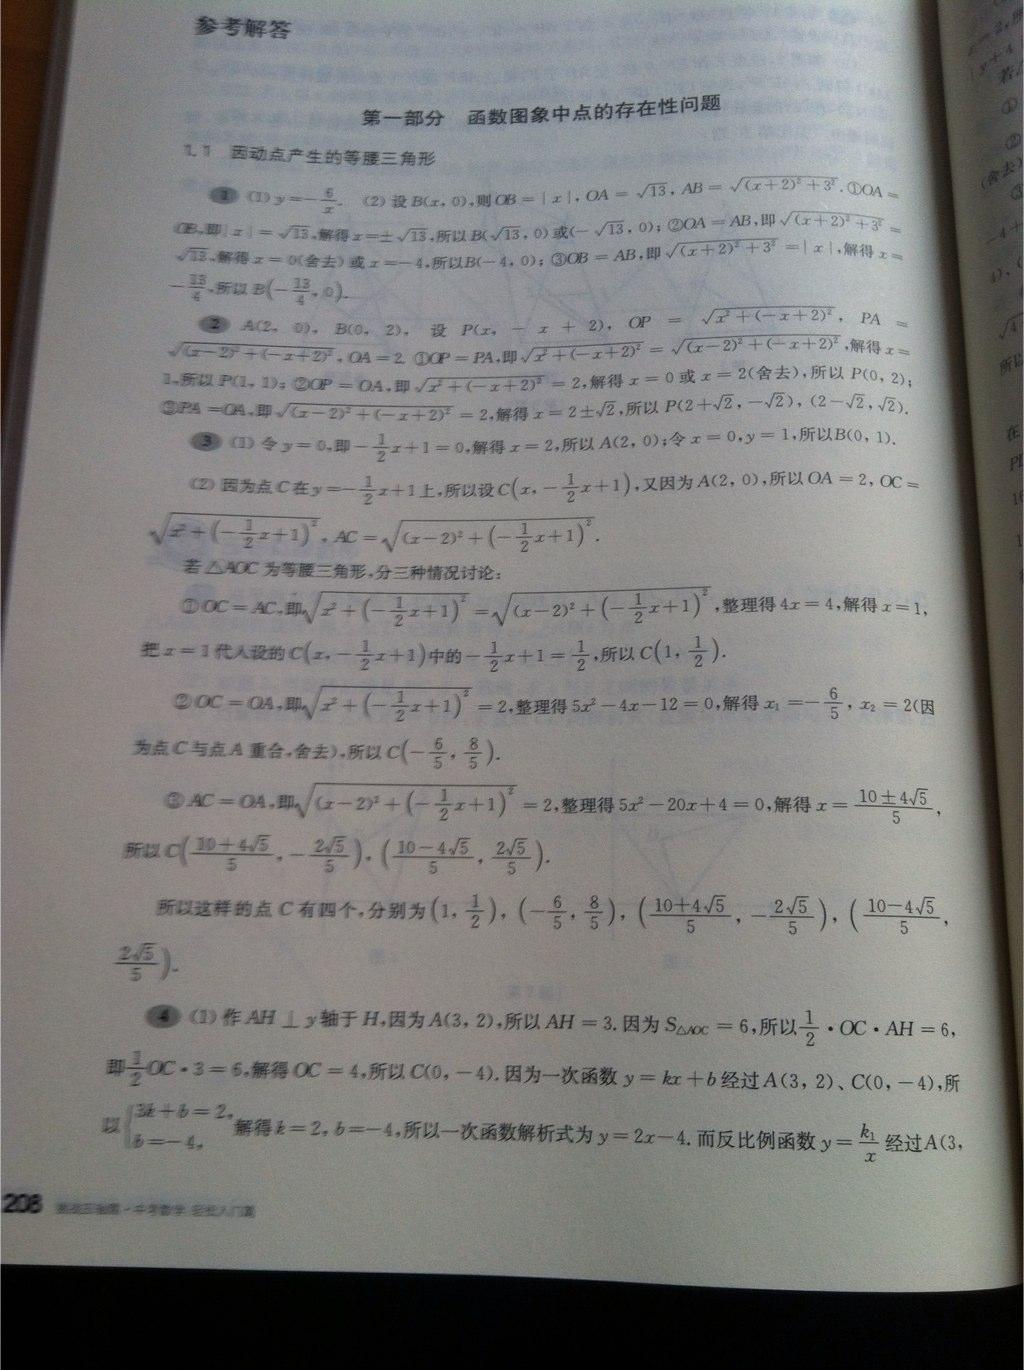 参考解答
第一部分 函数图象中点的存在性问题
1.1 因动点产生的等腰三角形
1 (1) y=-6/x. (2) 设 B(x, 0),则 OB=|x|, OA=√13, AB=√((x+2)²+3²). ①OA=
OB,即|x|=√13,解得 x=±√13,所以 B(√13, 0) 或(-√13, 0); ②OA=AB,即 √((x+2)²+3²)=
√13,解得 x=0(舍去)或 x=-4,所以B(-4, 0); ③OB=AB,即 √((x+2)²+3²)=|x|,解得 x=
-13/4,所以 B(-13/4, 0).
2 A(2, 0), B(0, 2), 设 P(x, -x+2), OP=√(x²+(-x+2)²), PA=
√((x-2)²+(-x+2)²), OA=2. ①OP=PA,即 √(x²+(-x+2)²)=√((x-2)²+(-x+2)²),解得 x=
1,所以 P(1, 1); ②OP=OA,即 √(x²+(-x+2)²)=2,解得 x=0 或 x=2(舍去),所以 P(0, 2);
③PA=OA,即 √((x-2)²+(-x+2)²)=2,解得 x=2±√2,所以 P(2+√2, -√2), (2-√2, √2).
3 (1) 令 y=0,即 -1/2x+1=0,解得 x=2,所以 A(2, 0);令 x=0, y=1,所以B(0, 1).
(2) 因为点 C 在 y=-1/2x+1上,所以设 C(x, -1/2x+1),又因为 A(2, 0),所以 OA=2, OC=
√(x²+(-1/2x+1)²), AC=√((x-2)²+(-1/2x+1)²).
若△AOC 为等腰三角形,分三种情况讨论:
①OC=AC,即√(x²+(-1/2x+1)²)=√((x-2)²+(-1/2x+1)²),整理得 4x=4,解得 x=1,
把 x=1 代入设的 C(x, -1/2x+1)中的-1/2x+1=1/2,所以 C(1, 1/2).
②OC=OA,即√(x²+(-1/2x+1)²)=2,整理得 5x²-4x-12=0,解得 x₁=-6/5, x₂=2(因
为点 C 与点 A 重合,舍去),所以 C(-6/5, 8/5).
③AC=OA,即√((x-2)²+(-1/2x+1)²)=2,整理得 5x²-20x+4=0,解得 x=(10±4√5)/5,
所以 C((10+4√5)/5, -2√5/5), ((10-4√5)/5, 2√5/5).
所以这样的点 C 有四个,分别为(1, 1/2), (-6/5, 8/5), ((10+4√5)/5, -2√5/5), ((10-4√5)/5,
2√5/5).
4 (1) 作 AH⊥y 轴于 H,因为 A(3, 2),所以 AH=3.因为 S△AOC=6,所以1/2·OC·AH=6,
即1/2OC·3=6,解得 OC=4,所以 C(0, -4).因为一次函数 y=kx+b 经过 A(3, 2)、C(0, -4),所
以{3k+b=2, b=-4, 解得 k=2, b=-4,所以一次函数解析式为 y=2x-4.而反比例函数 y=k₁/x 经过A(3,
208 挑战压轴题·中考数学 轻松入门篇